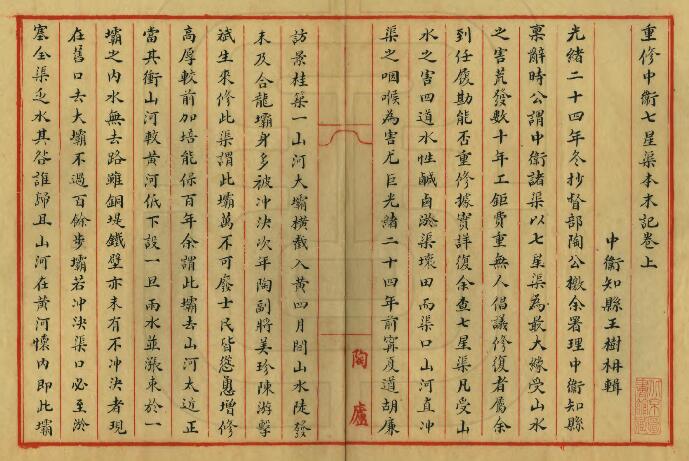 重修中衛七星渠本末記卷上
中衛知縣王樹枏輯
光緒二十四年冬抄督部陶公檄余署理中衛知縣
稟辭時公謂中衛諸渠以七星渠為最大緣受山水
之害荒發數十年工鉅費重無人倡議修復者屬余
到任履勘能否重修據實詳復余查七星渠凡受山
水之害四道水性鹹鹵淤渠壞田而渠口山河直沖
渠之咽喉為害尤巨光緒二十四年前甯夏道胡廉
陶廬
訪景桂築一山河大壩橫截入黃四月間山水陡發
未及合龍壩身多被沖決次年陶副將美珍陳游擊
斌生來修此渠謂此壩萬不可廢士民皆慫恿增修
高厚較前加培能保百年余謂此壩去山河太近正
當其衝山河較黃河低下設一旦兩水並漲束於一
壩之內水無去路雖銅堤鐵壁亦未有不沖決者現
在舊口去大壩不過百餘步壩若沖決渠口必至淤
塞全渠乏水其咎誰歸且山河在黃河懷內即此壩